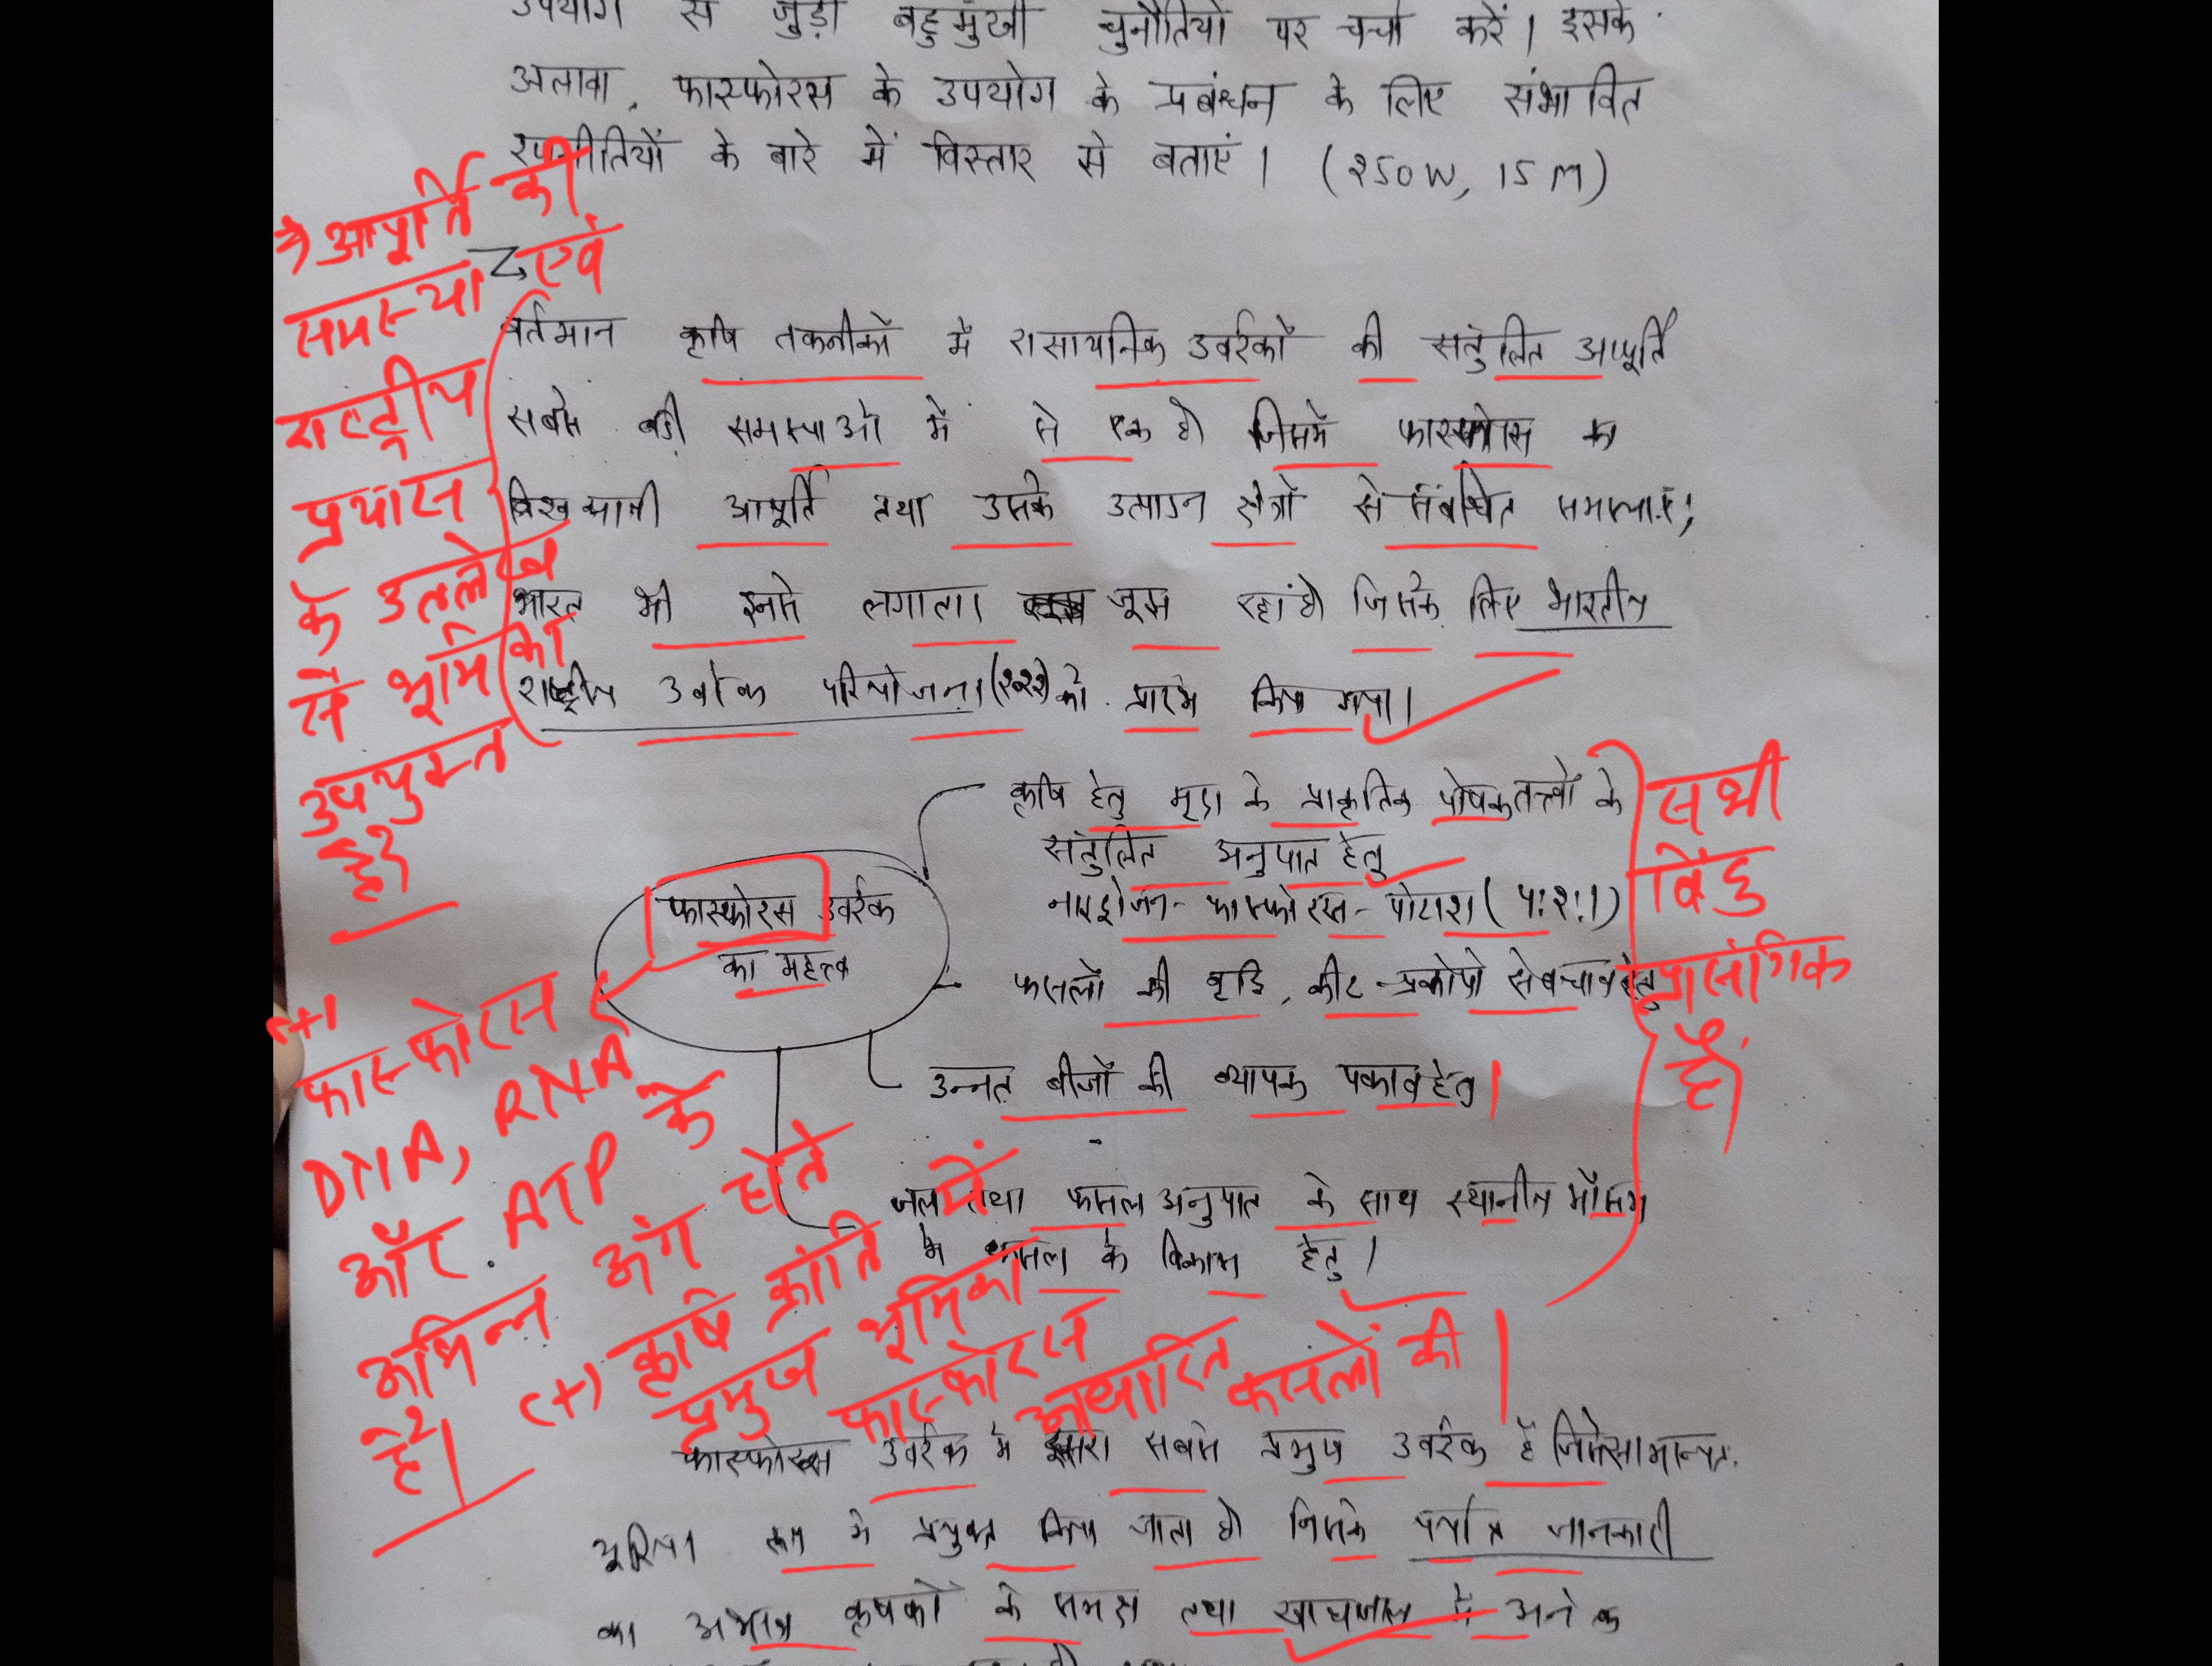 उपयोग से जुड़ी बहुमुखी चुनौतियों पर चर्चा करें। इसके
अलावा, फास्फोरस के उपयोग के प्रबंधन के लिए संभावित
रणनीतियों के बारे में विस्तार से बताएं। (250W, 15M)
→ आपूर्ति की
समस्या एवं
राष्ट्रीय
प्रयास
के उल्लेख
से भूमिका
उपयुक्त
है।
वर्तमान कृषि तकनीकों में रासायनिक उर्वरकों की संतुलित आपूर्ति
सबसे बड़ी समस्याओं में से एक है जिसमें फास्फोरस का
विश्वव्यापी आपूर्ति तथा उसके उत्पादन क्षेत्रों से संबंधित समस्याएं;
भारत भी इनसे लगातार जूझ रहा है जिसके लिए भारतीय
राष्ट्रीय उर्वरक परियोजना को प्रारंभ किया गया।
फास्फोरस उर्वरक
का महत्व
कृषि हेतु मृदा के प्राकृतिक पोषकतत्वों के
संतुलित अनुपात हेतु
नाइट्रोजन-फास्फोरस-पोटाश (4:2:1)
- फसलों की वृद्धि, कीट-प्रकोपों से बचाव हेतु
उन्नत बीजों की व्यापक पकाव हेतु।
जल तथा फसल अनुपात के साथ स्थानीय मौसम
में फसल के विकास हेतु।
सभी
बिंदु
प्रासंगिक
हैं।
(+) फास्फोरस
DNA, RNA
और ATP के
अभिन्न अंग होते
है।
(+) कृषि क्रांति में
प्रमुख भूमिका
फास्फोरस
आधारित फसलों की।
फास्फोरस उर्वरक में दूसरा सबसे प्रमुख उर्वरक है जिसे सामान्यतः
यूरिया रूप में प्रयुक्त किया जाता है जिसके पर्याप्त जानकारी
का अभाव कृषकों के समक्ष तथा खाद्यजाल में अनेक